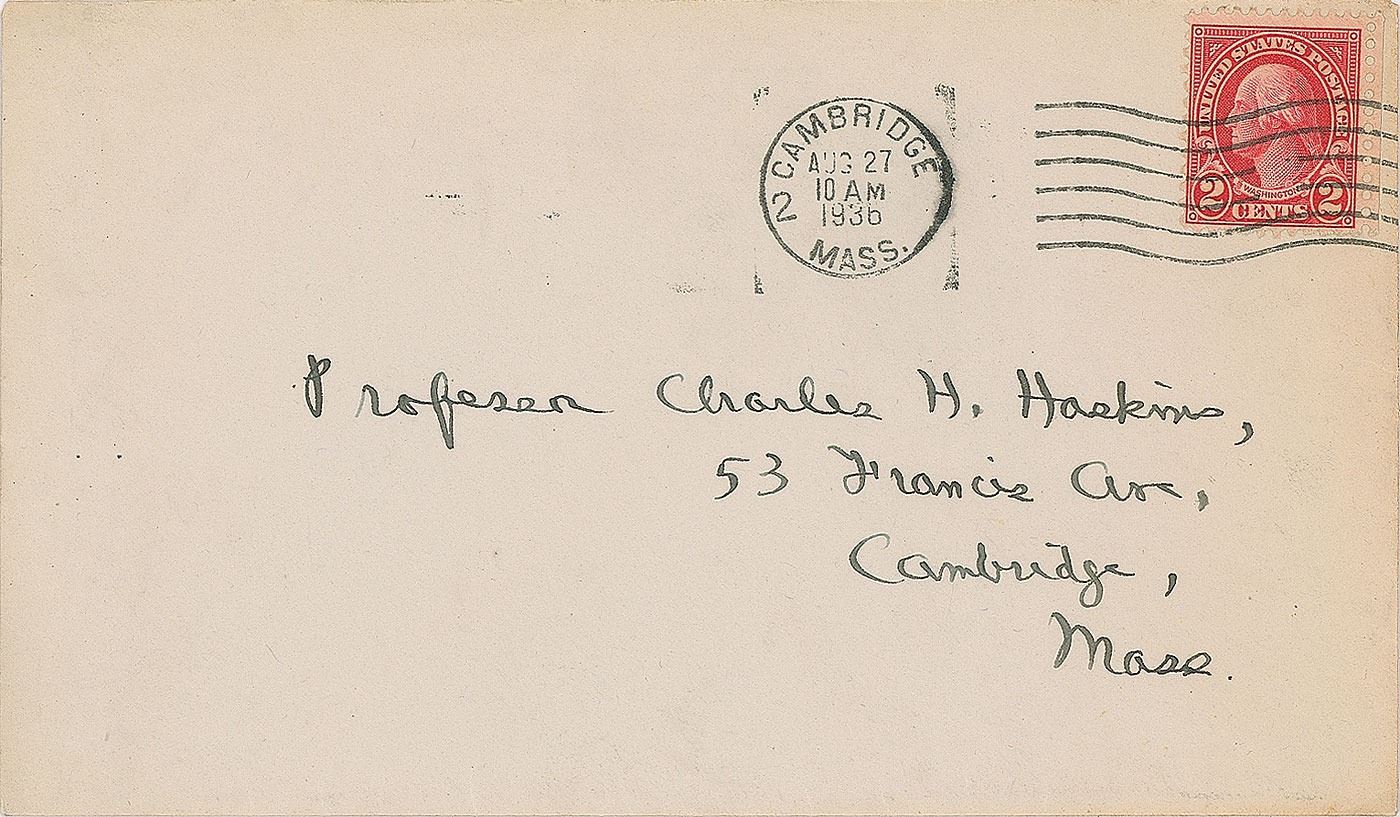 UNITED STATES POSTAGE
WASHINGTON
2 CENTS 2
2 CAMBRIDGE
AUG 27
10 AM
1936
MASS.
Professor Charles H. Haskins,
53 Francis Ave,
Cambridge,
Mass.